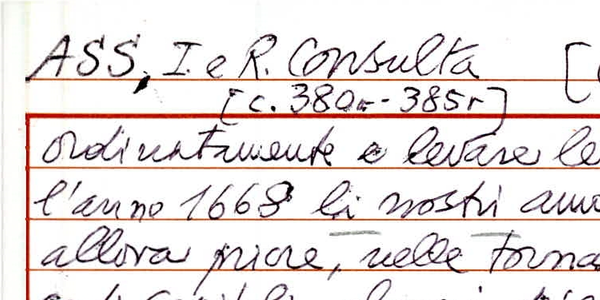 ASS, I e R. Consulta [
[c. 380r - 385r]
ordinatamente a levare le
l'anno 1668 li nostri
allora priore, nelle